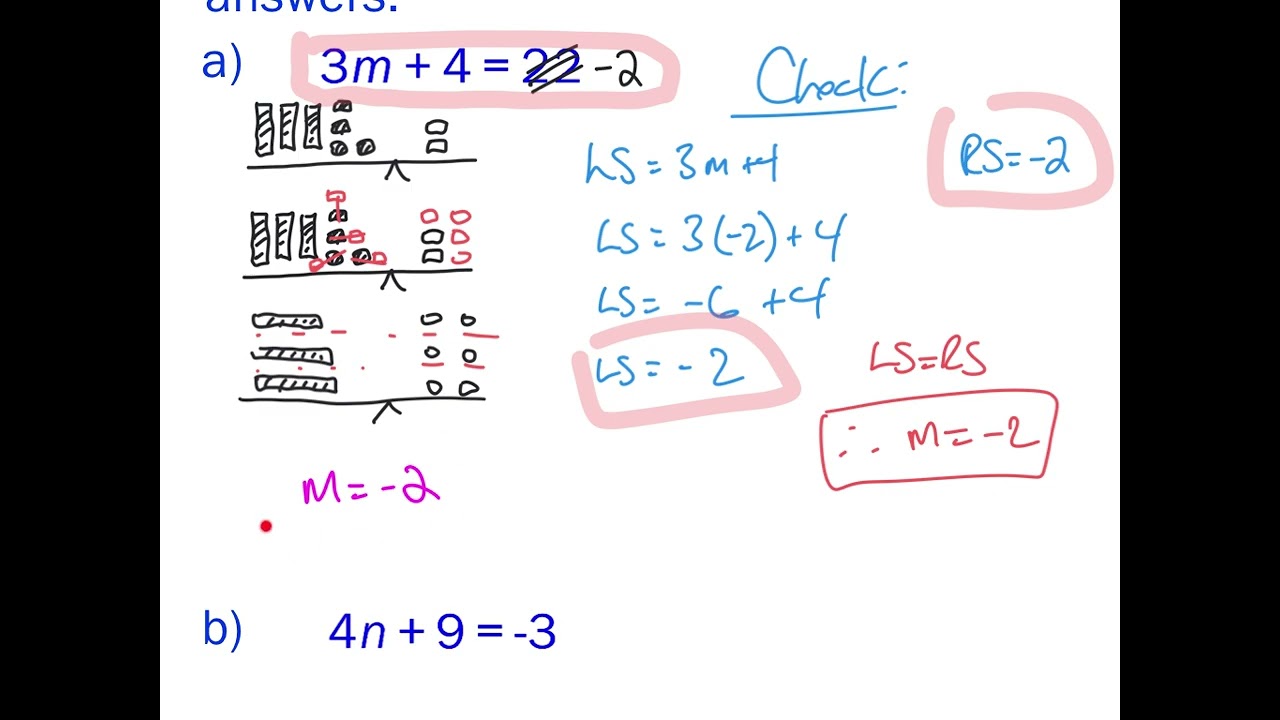 answers.
a) 3m + 4 = 22 -2
Check:
LS = 3m+4
RS = -2
LS = 3(-2) + 4
LS = -6 + 4
LS = -2
LS=RS
∴ m = -2
m = -2
b) 4n + 9 = -3